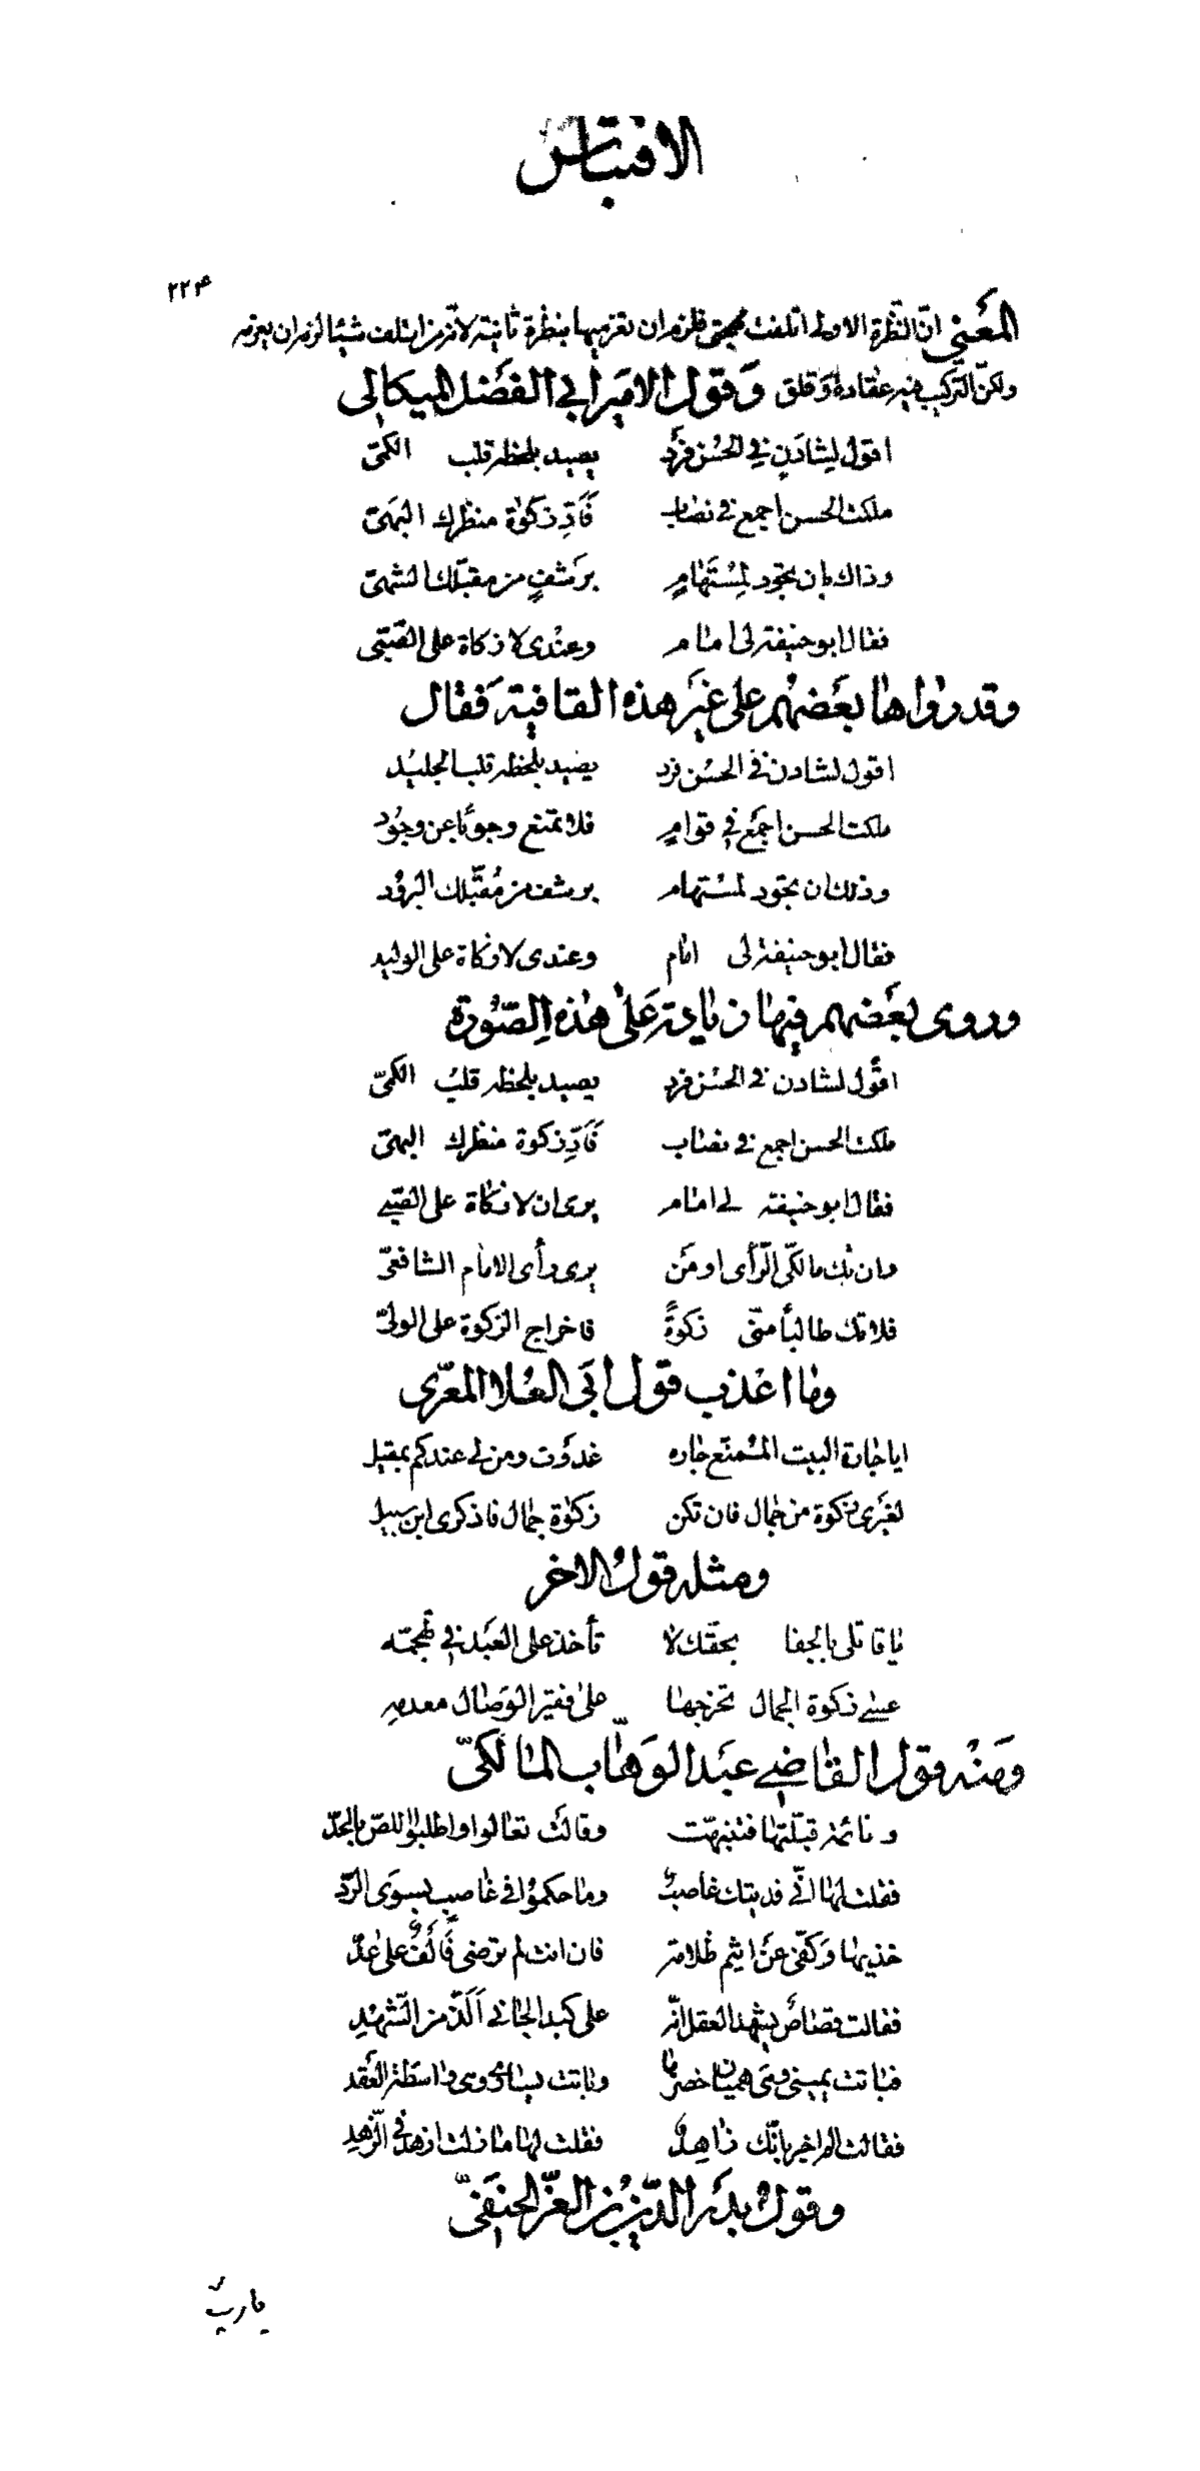 الاقتباس
٢٢٣
المَعنى انّ النّظرة الاولى اتلفت مهجتى فلزم ان تغرميها بنظرة ثانية لانّ من اتلف شيئا لزم ان يغرمه
ولكنّ التركيب فيه عقادة وقلق وَقول الامَير ابي الفَضل الميكالى
اقول لِشادَنٍ فِي الحُسْن فَردٍ يصيد بلحظه قلب الكمّى
ملكت الحسن اجمع فى نصاب فَاَدِّ زكوٰة منظرك البَهىّ
وذاك بان تجود لِمُسْتَهامٍ برَشفٍ من مقبّلك الشهىّ
فقال ابو حنيفة لى امام وعِنْدى لا زكاة على الصّبّى
وقد رواها بعَضهُم على غيَر هذه القافية فقال
اقول لشادن فى الحسْن فرد يصيد بلحظه قلب الجليُد
ملكت الحسن اجَمع فى قوامٍ فلا تمنع وجوبًا عن وجُود
وذلك ان تجود لمسْتهام برشف من مُقبّلك البرُود
فقال ابو حنيفة لى امام وعندى لا زكاة على الوليد
وروى بعَضهم فيها زيادة عَلىٰ هٰذه الصّوُرة
اقُول لشادن فى الحسْن فرد يصيد بلحظه قلبَ الكمّى
ملكت الحسن اجمع فى نصاب فَاَدِّ زكوة منظرك البهىّ
فقال ابو حنيفة لى امام يرى ان لا زكاة على الصّبى
وان تك مالكّى الرّأى او مَن يرى رأى الامام الشافعىّ
فلا تك طالبًا منّى زكوةً فاخراج الزكوة على الولىّ
وما اعْذب قول ابَى العُلا المعّرى
ايا جارة البيت المُمنّع جاره غدوَت ومن لى عندكم بمقيل
لغيَرى زكوة من جمال فان تكن زكوٰة جمال فاذكرى ابن سبيل
ومثله قولُ الاخر
يا قاتلى بالجفا بحقّك لا تأخذ على العَبد فى تهجمّه
عسٰى زكوة الجمال تخرجها علىٰ فقير الوصَال معدمه
وَمنْه قول القاضى عبَد الوَهّاب المالكىّ
ونائمة قبّلتها فتنبّهت وقالتَ تعالوا واطلبوُا للصّ بالحدّ
فقلت لها انّى فديتك غاصبٌ وما حكموُا فى غاصبٍ بسِوَى الرّد
خذيها وَكفّى عَن اثيم ظلامة فان انت لم ترضى فَاَلفٌ على عدّ
فقالت قصاصٌ يشهد العَقل انّه على كبد الجانى اَلَذّ من الشّهْدِ
فباتت يمينى وهى هميان خصرها وباتت يسارى وهى واسطة العقَد
فقالت الم اخبر بانّك زاهِدٌ فقلت لها ما زلت ازهد فى الزّهدِ
وقولُ بدَر الدّين بن العزّ الحنَفىّ
يا ربّ